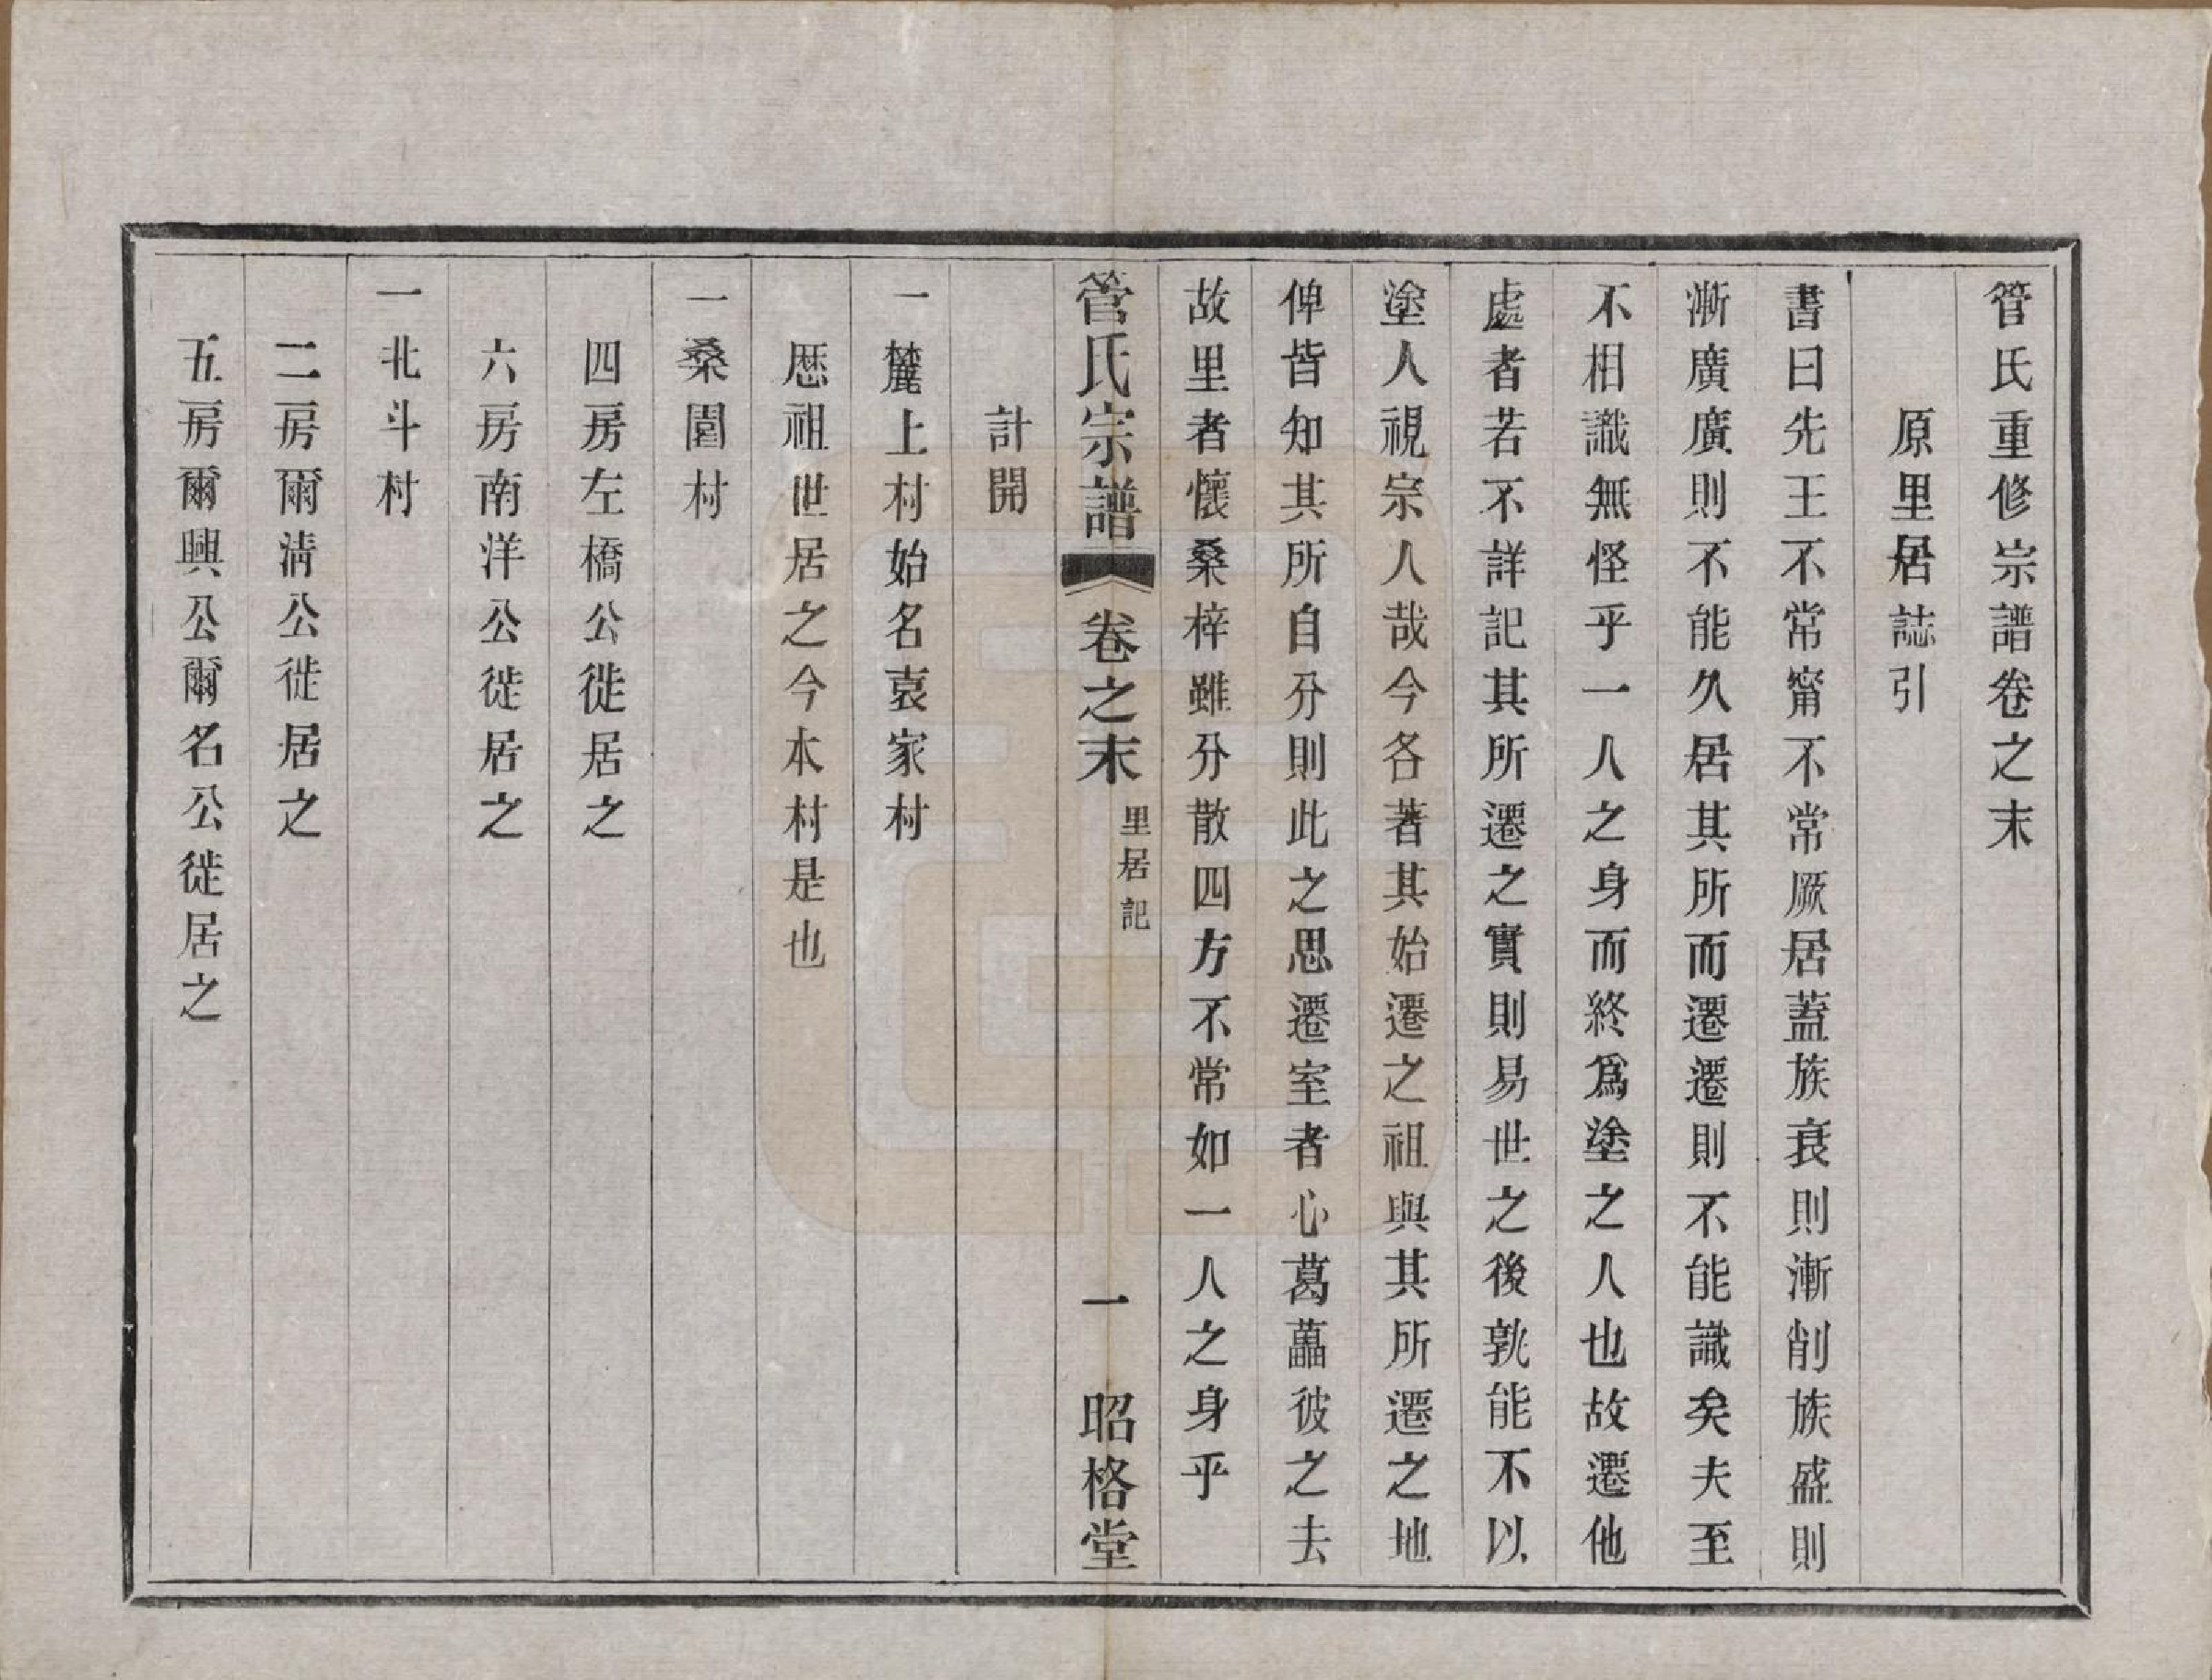 管氏重修宗譜卷之末
原里居誌引
書曰先王不常甯不常厥居蓋族衰則漸削族盛則
漸廣廣則不能久居其所而遷遷則不能識矣夫至
不相識無怪乎一人之身而終爲塗之人也故遷他
處者若不詳記其所遷之實則易世之後孰能不以
塗人視宗人哉今各著其始遷之祖與其所遷之地
俾皆知其所自分則此之思遷室者心葛藟彼之去
故里者懷桑梓雖分散四方不常如一人之身乎
管氏宗譜 卷之末 里居記 一 昭格堂
計開
一麓上村始名袁家村
歷祖世居之今本村是也
一桑園村
四房左橋公徙居之
六房南洋公徙居之
一北斗村
二房爾清公徙居之
五房爾興公爾名公徙居之